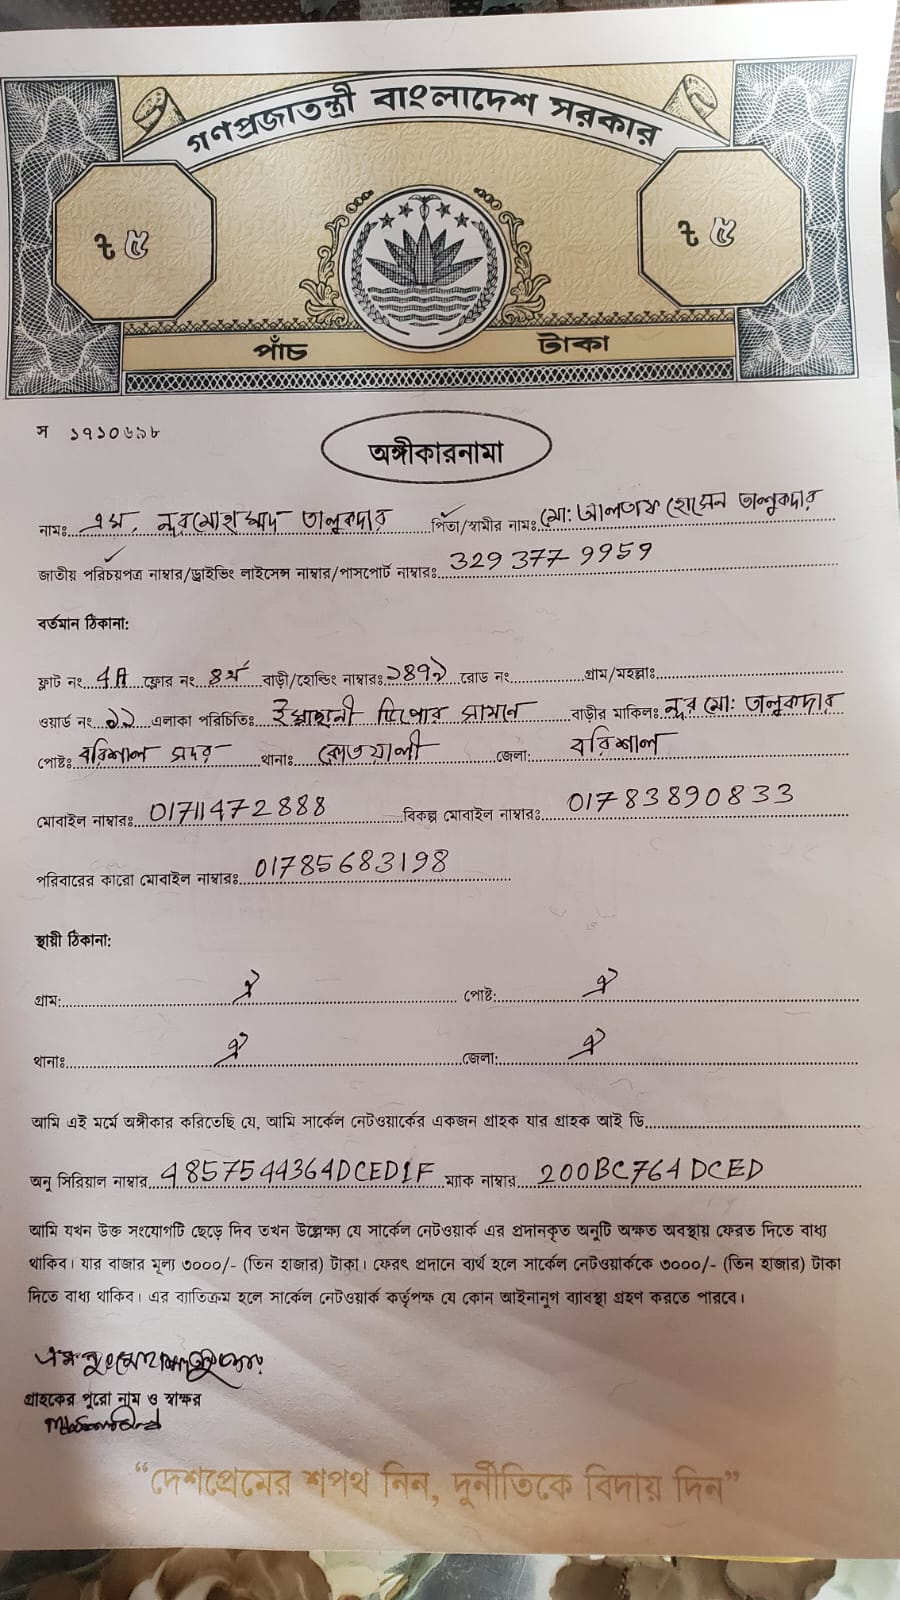 গণপ্রজাতন্ত্রী বাংলাদেশ সরকার
৳ ৫ ৳ ৫
পাঁচ টাকা
স ১৭১০৬৯৮
অঙ্গীকারনামা
নামঃ এস. নুরমোহাম্মদ তালুকদার পিতা/স্বামীর নামঃ মো: আলতাফ হোসেন তালুকদার
জাতীয় পরিচয়পত্র নাম্বার/ড্রাইভিং লাইসেন্স নাম্বার/পাসপোর্ট নাম্বারঃ 329 377 9959
বর্তমান ঠিকানা:
ফ্লাট নং 4A ফ্লোর নং ৪র্থ বাড়ী/হোল্ডিং নাম্বারঃ ১৪৭১ রোড নং গ্রাম/মহল্লাঃ
ওয়ার্ড নং ১১ এলাকা পরিচিতিঃ ইস্পাহানী ডিপোর সামনে বাড়ীর মালিকঃ নুর মো: তালুকদার
পোষ্টঃ বরিশাল সদর থানাঃ কোতয়ালী জেলা: বরিশাল
মোবাইল নাম্বারঃ 01711472888 বিকল্প মোবাইল নাম্বারঃ 01783890833
পরিবারের কারো মোবাইল নাম্বারঃ 01785683198
স্থায়ী ঠিকানা:
গ্রাম: ঐ পোষ্ট: ঐ
থানাঃ ঐ জেলা: ঐ
আমি এই মর্মে অঙ্গীকার করিতেছি যে, আমি সার্কেল নেটওয়ার্কের একজন গ্রাহক যার গ্রাহক আই ডি
অনু সিরিয়াল নাম্বার 4857544364DCED1F ম্যাক নাম্বার 200BC764DCED
আমি যখন উক্ত সংযোগটি ছেড়ে দিব তখন উল্লেক্ষ্য যে সার্কেল নেটওয়ার্ক এর প্রদানকৃত অনুটি অক্ষত অবস্থায় ফেরত দিতে বাধ্য
থাকিব। যার বাজার মূল্য ৩০০০/- (তিন হাজার) টাকা। ফেরৎ প্রদানে ব্যর্থ হলে সার্কেল নেটওয়ার্ককে ৩০০০/- (তিন হাজার) টাকা
দিতে বাধ্য থাকিব। এর ব্যতিক্রম হলে সার্কেল নেটওয়ার্ক কর্তৃপক্ষ যে কোন আইনানুগ ব্যাবস্থা গ্রহণ করতে পারবে।
গ্রাহকের পুরো নাম ও স্বাক্ষর
“দেশপ্রেমের শপথ নিন, দুর্নীতিকে বিদায় দিন”